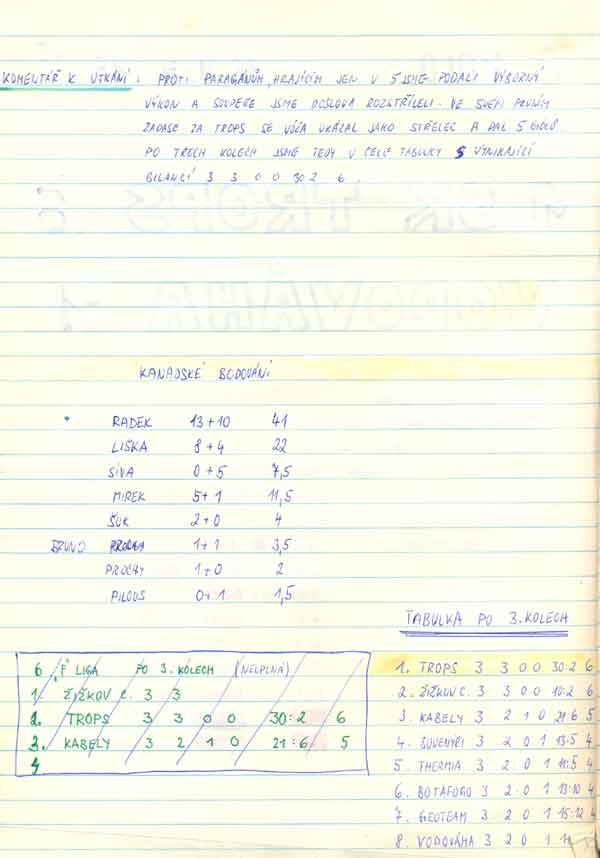 KOMENTÁŘ K UTKÁNÍ : PROTI PARAGÁNŮM, HRAJÍCÍM JEN V 5 JSME PODALI VÝBORNÝ
VÝKON A SOUPEŘE JSME DOSLOVA ROZSTŘÍLELI. VE SVÉM PRVNÍM
ZÁPASE ZA TROPS SE VÓŠA UKÁZAL JAKO STŘELEC A DAL 5 GÓLŮ.
PO TŘECH KOLECH JSME TEDY V ČELE TABULKY S VYNIKAJÍCÍ
BILANCÍ 3 3 0 0 30:2 6.
KANADSKÉ BODOVÁNÍ
RADEK 13+10 41
LIŠKA 8+4 22
SIVA 0+5 7,5
MIREK 5+1 11,5
ŠUK 2+0 4
BRUNO 1+1 3,5
PROCHY 1+0 2
PILOUS 0+1 1,5
TABULKA PO 3. KOLECH
6. F LIGA PO 3. KOLECH (NEÚPLNÁ)
1. ŽIŽKOV C. 3 3
2. TROPS 3 3 0 0 30:2 6
3. KABELY 3 2 1 0 21:6 5
4
1. TROPS 3 3 0 0 30:2 6
2. ŽIŽKOV C. 3 3 0 0 10:2 6
3. KABELY 3 2 1 0 21:6 5
4. SUVENÝRI 3 2 0 1 13:5 4
5. THERMIA 3 2 0 1 11:5 4
6. BOTAFOGO 3 2 0 1 13:10 4
7. GEOTEAM 3 2 0 1 15:12 4
8. VODOVÁHA 3 2 0 1